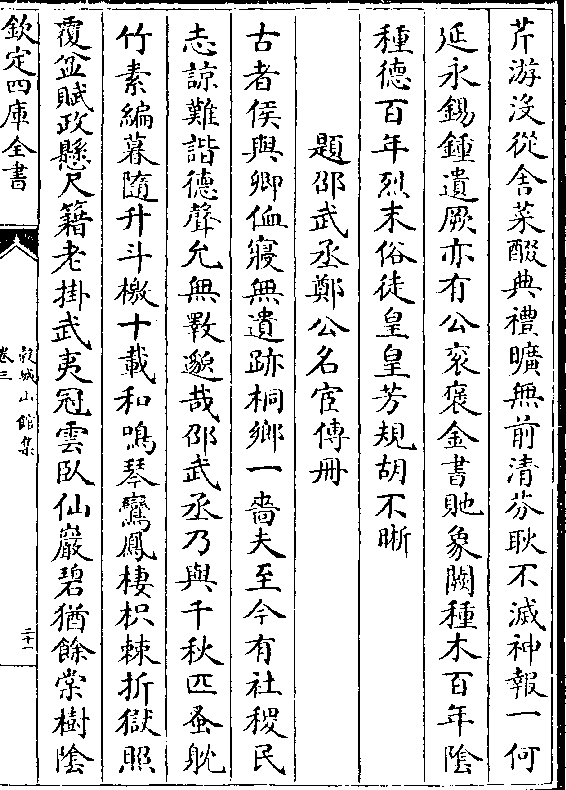 芹游沒從舍菜醊典禮曠無前清芬耿不滅神報一何
延永錫鍾遺厥亦有公衮褒金書貤象闕種木百年陰
種德百年烈末俗徒皇皇芳規胡不晣
題邵武丞鄭公名宦傳冊
古者侯與卿侐寢無遺跡桐鄉一嗇夫至今有社稷民
志諒難諧德聲允無斁邈哉邵武丞乃與千秋匹蚤躭
竹素編暮隨升斗檄十載和鳴琴鸞鳳棲枳棘折獄照
覆盆賦政懸尺籍老掛武夷冠雲臥仙巖碧猶餘棠樹陰
欽定四庫全書
穀城山館集
卷三
二十一